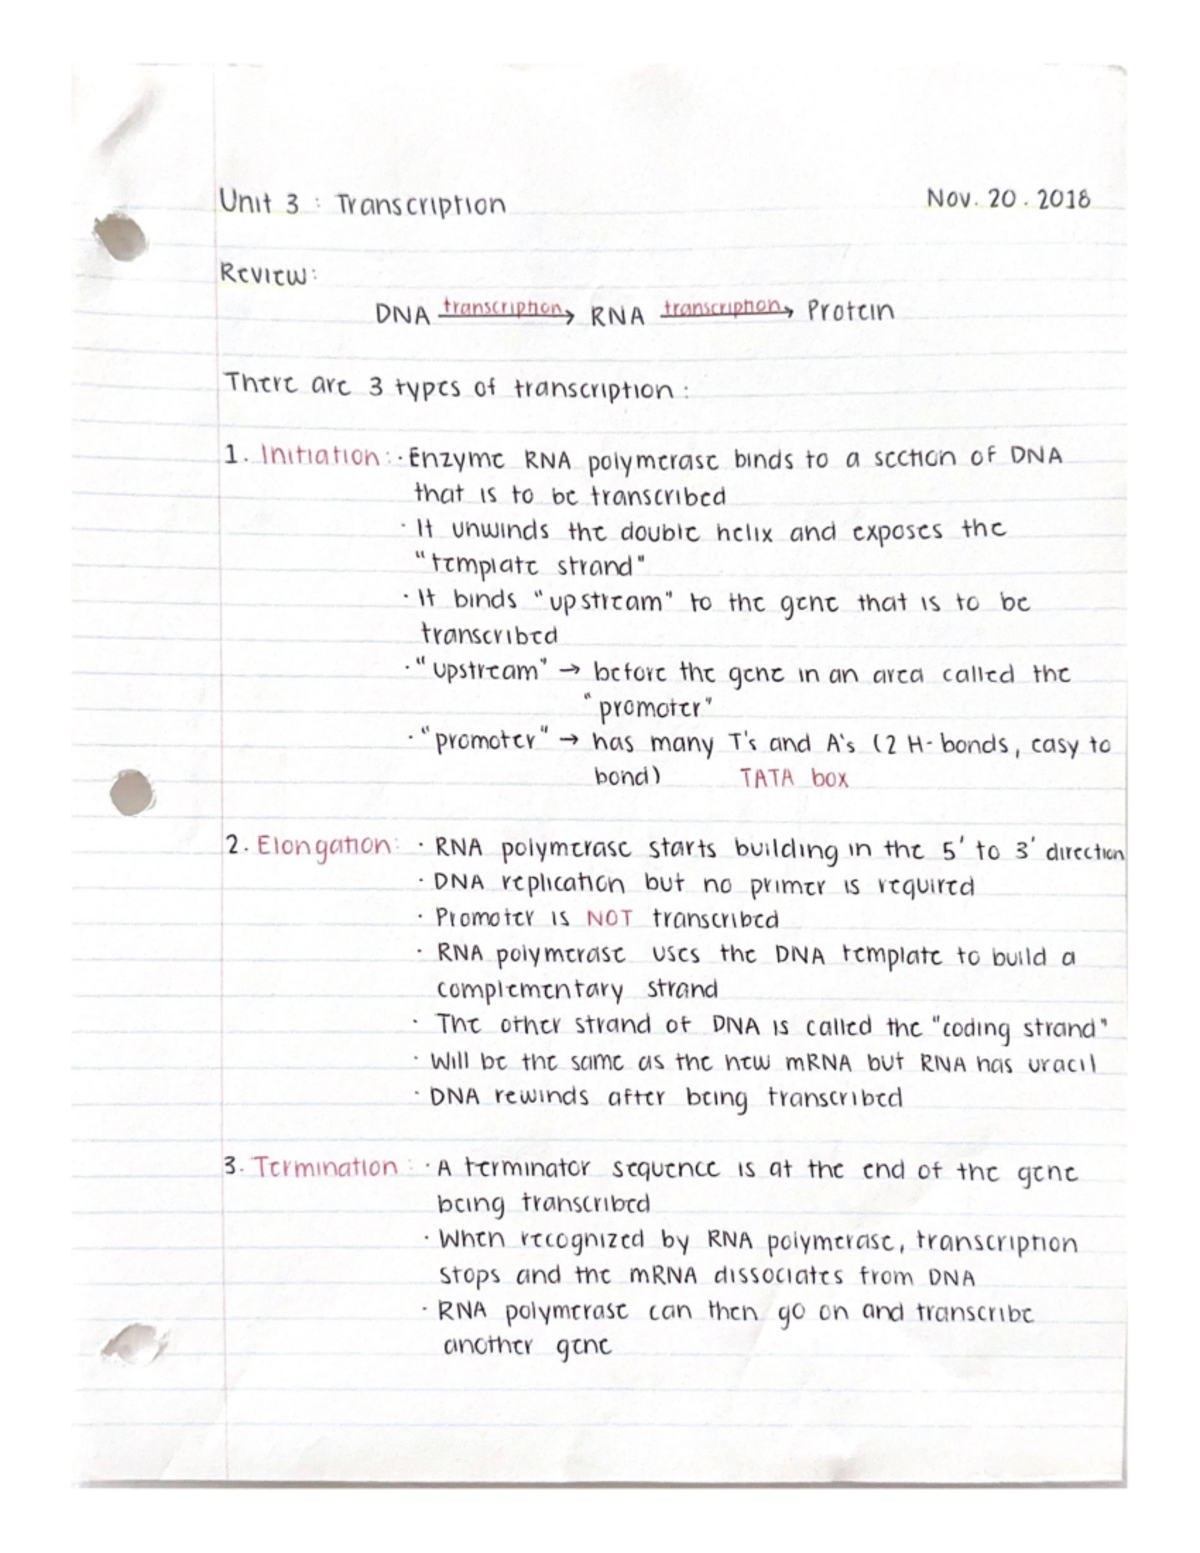 Unit 3 : Transcription Nov. 20. 2018
Review:
DNA transcription → RNA transcription → Protein
There are 3 types of transcription:
1. Initiation: · Enzyme RNA polymerase binds to a section of DNA
that is to be transcribed
· It unwinds the double helix and exposes the
"template strand"
· It binds "upstream" to the gene that is to be
transcribed
· "upstream" → before the gene in an area called the
"promoter"
· "promoter" → has many T's and A's (2 H-bonds, easy to
bond) TATA box
2. Elongation: · RNA polymerase starts building in the 5' to 3' direction
· DNA replication but no primer is required
· Promoter is NOT transcribed
· RNA polymerase uses the DNA template to build a
complementary strand
· The other strand of DNA is called the "coding strand"
· Will be the same as the new mRNA but RNA has uracil
· DNA rewinds after being transcribed
3. Termination: · A terminator sequence is at the end of the gene
being transcribed
· When recognized by RNA polymerase, transcription
stops and the mRNA dissociates from DNA
· RNA polymerase can then go on and transcribe
another gene